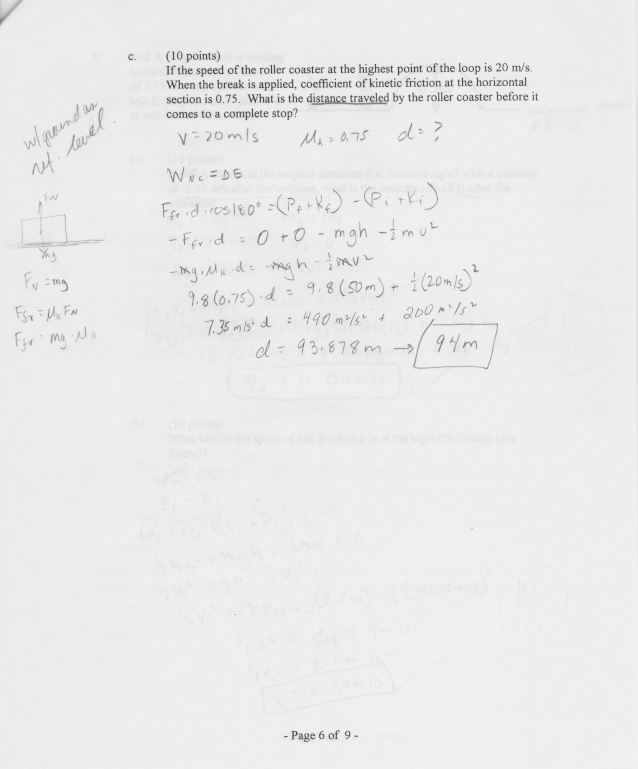 c. (10 points)
If the speed of the roller coaster at the highest point of the loop is 20 m/s.
When the break is applied, coefficient of kinetic friction at the horizontal
section is 0.75. What is the distance traveled by the roller coaster before it
comes to a complete stop?
w/ ground as
ref. level.
V = 20 m/s μk = 0.75 d = ?
WNC = ΔE
Ffr · d · cos180° = (Pf + Kf) - (Pi + Ki)
- Ffr · d = 0 + 0 - mgh - ½ mv²
-mg · μk · d = -mgh - ½ mv²
9.8 (0.75) · d = 9.8 (50m) + ½ (20m/s)²
7.35 m/s² d = 490 m²/s² + 200 m²/s²
d = 93.878 m → 94m
FN
mg
FN = mg
Ffr = μk FN
Ffr = mg · μk
(b) (10 points)
What will be the speed of ball B when it is at the top of the
- Page 6 of 9 -